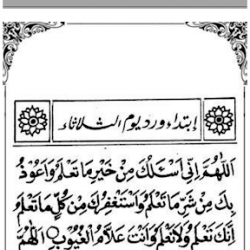 إبتداء ورد يوم الثلاثاء
اَللّٰهُمَّ اِنِّىْ اَسْئَلُكَ مِنْ خَيْرِ مَا تَعْلَمُ وَاَعُوْذُ
بِكَ مِنْ شَرِّ مَا تَعْلَمُ وَاَسْتَغْفِرُكَ مِنْ كُلِّ مَا تَعْلَمُ
اِنَّكَ تَعْلَمُ وَلَا نَعْلَمُ وَاَنْتَ عَلَّامُ الْغُيُوْبِ اَللّٰهُمَّ